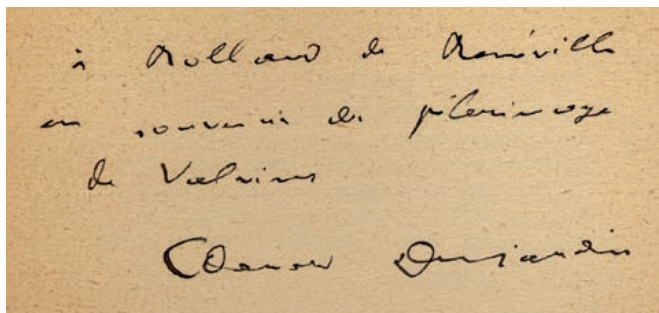 à Rolland de Renéville
en souvenir du pèlerinage
de Valvins
Edouard Dujardin